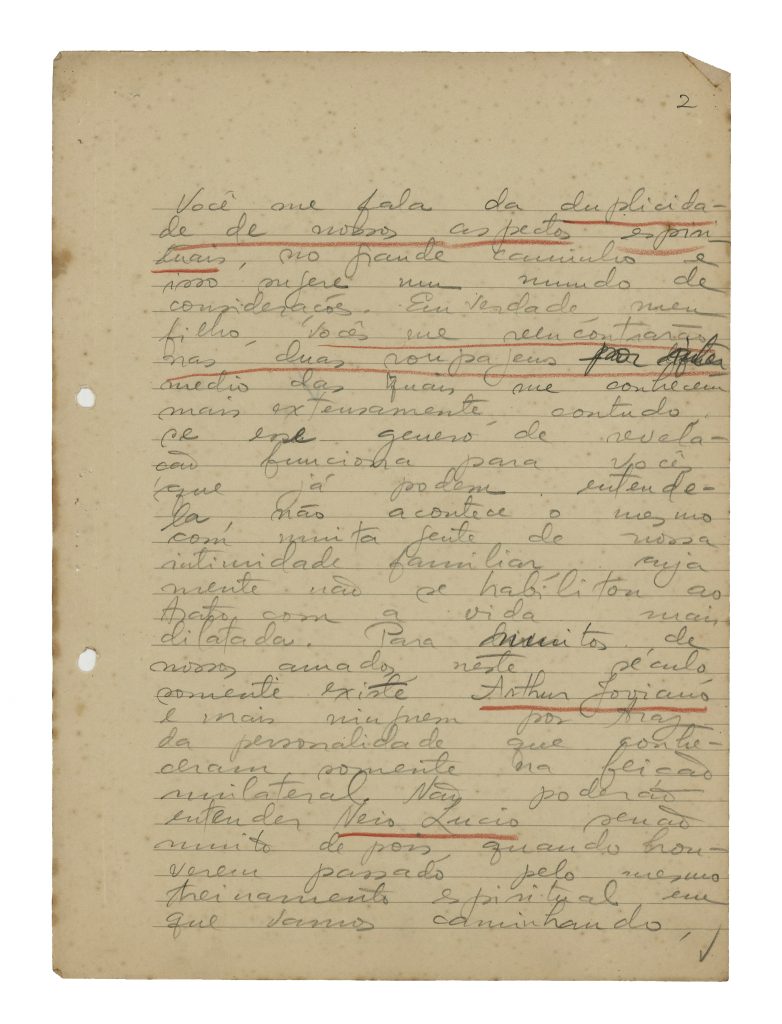 2
Você me fala da duplicida-
de de nossos aspectos espiri
tuais, no grande caminho e
isso sugere um mundo de
considerações. Em verdade meu
filho, vocês me reencontrarão
nas duas roupagens por inter
medio das quais me conhecem
mais extensamente, contudo,
se esse genero de revela-
ção funciona para vocês
que já podem entende-
la não acontece o mesmo
com muita gente de nossa
intimidade familiar, cuja
mente não se habilitou ao
trato com a vida mais
dilatada. Para muitos de
nossos amados neste século
somente existe Arthur Joviano
e mais ninguem por traz
da personalidade que conhe-
ceram somente na feição
unilateral. Não poderão
entender Neio Lucio senão
muito depois, quando hou-
verem passado pelo mesmo
treinamento espiritual em
que vamos caminhando,